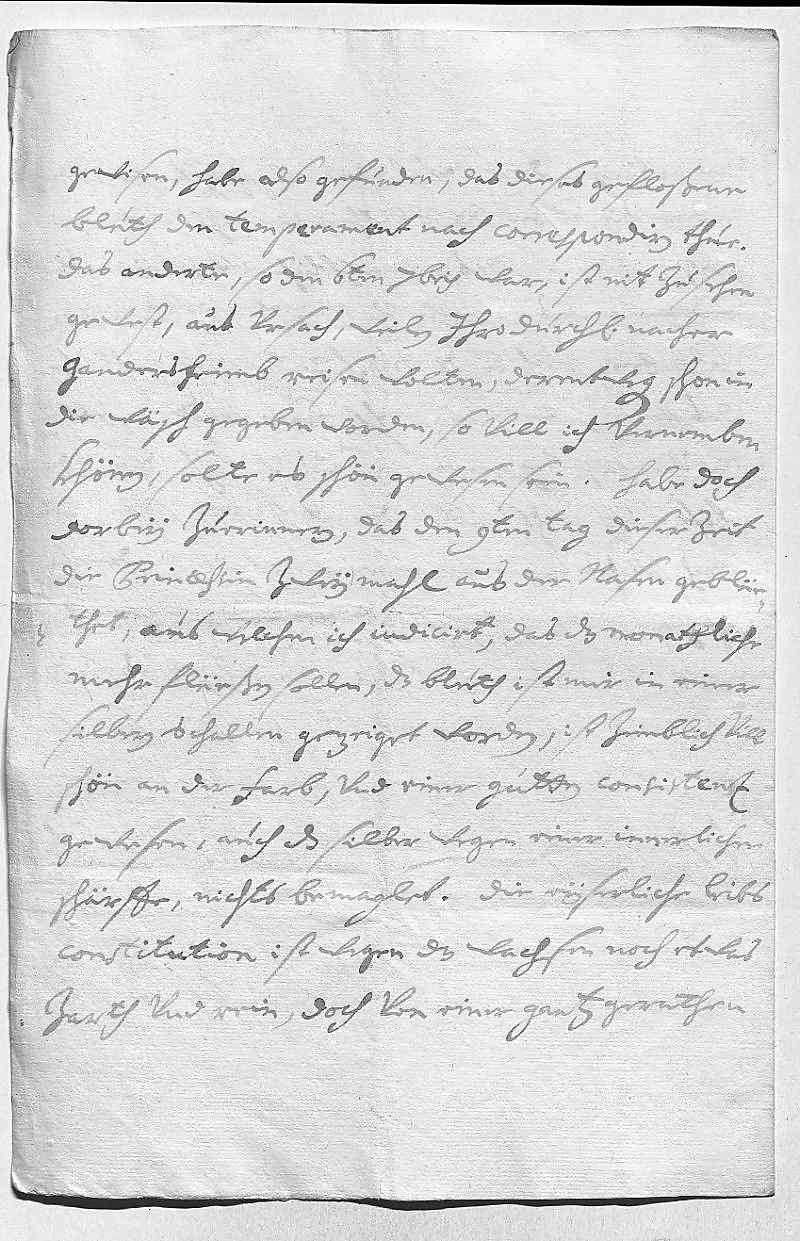 gewisen, habe also gefunden, das dieses gefloßene
bluth den temperament nach correspondirn thue.
das anderte, so den 6ten 7bris war, ist nit zu sehen
gewest, aus Ursach, weiln Ihro durchl. nacher
Gandersheimb reisen wolten, derentweg schon in
die Wäsch gegeben worden, so Vill ich Vernomben
khönn, solte es schön gewesen sein. habe doch
vorbey zuerinnern, das den 9ten tag dieser Zeit
die Prinßessin Zwey mahl aus der Nasen geblüe-
thet, aus welchen ich indicirt, das dz monathliche
mehr flüeßen sollen, dz bluth ist mir in einer
silbern schallen gezeiget worden, ist Zimblich Vill
schön an der farb, Und einer gutten consistenz
gewesen, auch dz silber wegen einer innerlichen
schärffe, nichts bemaglet. die eüserliche leibs
constitution ist wegen dz wachsen noch etwas
Zarth Und rein, doch Von einer gantz gerathen